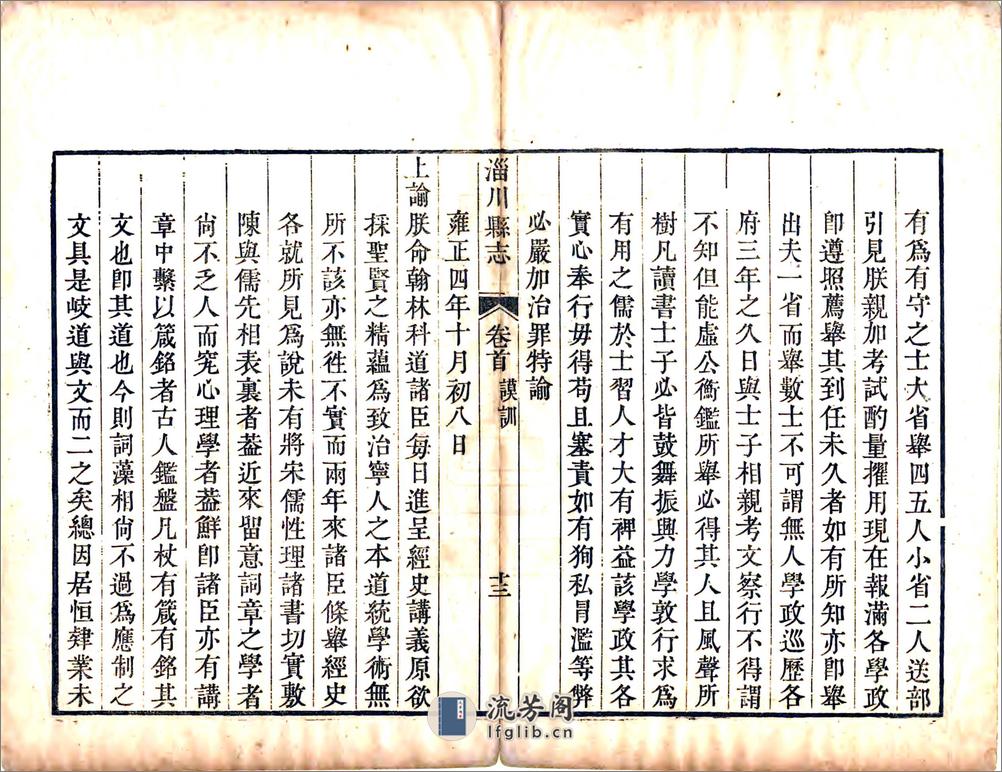 有爲有守之士大省舉四五人小省二人送部
引見朕親加考試酌量擢用現在報滿各學政
卽遵照薦舉其到任未久者如有所知亦卽舉
出夫一省而舉數士不可謂無人學政巡歷各
府三年之久日與士子相親考文察行不得謂
不知但能虛公衡鑑所舉必得其人且風聲所
樹凡讀書士子必皆鼓舞振興力學敦行求爲
有用之儒於士習人才大有裨益該學政其各
實心奉行毋得苟且塞責如有狥私冐濫等弊
必嚴加治罪特諭
雍正四年十月初八日
淄川縣志
卷首 謨訓
十三
上諭朕命翰林科道諸臣每日進呈經史講義原欲
採聖賢之精蘊爲致治寧人之本道統學術無
所不該亦無徃不實而兩年來諸臣條舉經史
各就所見爲說未有將宋儒性理諸書切實敷
陳與儒先相表裏者葢近來留意詞章之學者
尚不乏人而究心理學者葢鮮卽諸臣亦有講
章中繫以箴銘者古人鑑盤几杖有箴有銘其
文也卽其道也今則詞藻相尚不過爲應制之
文具是岐道與文而二之矣總因居恒肄業未
流芳阁
lfglib.cn